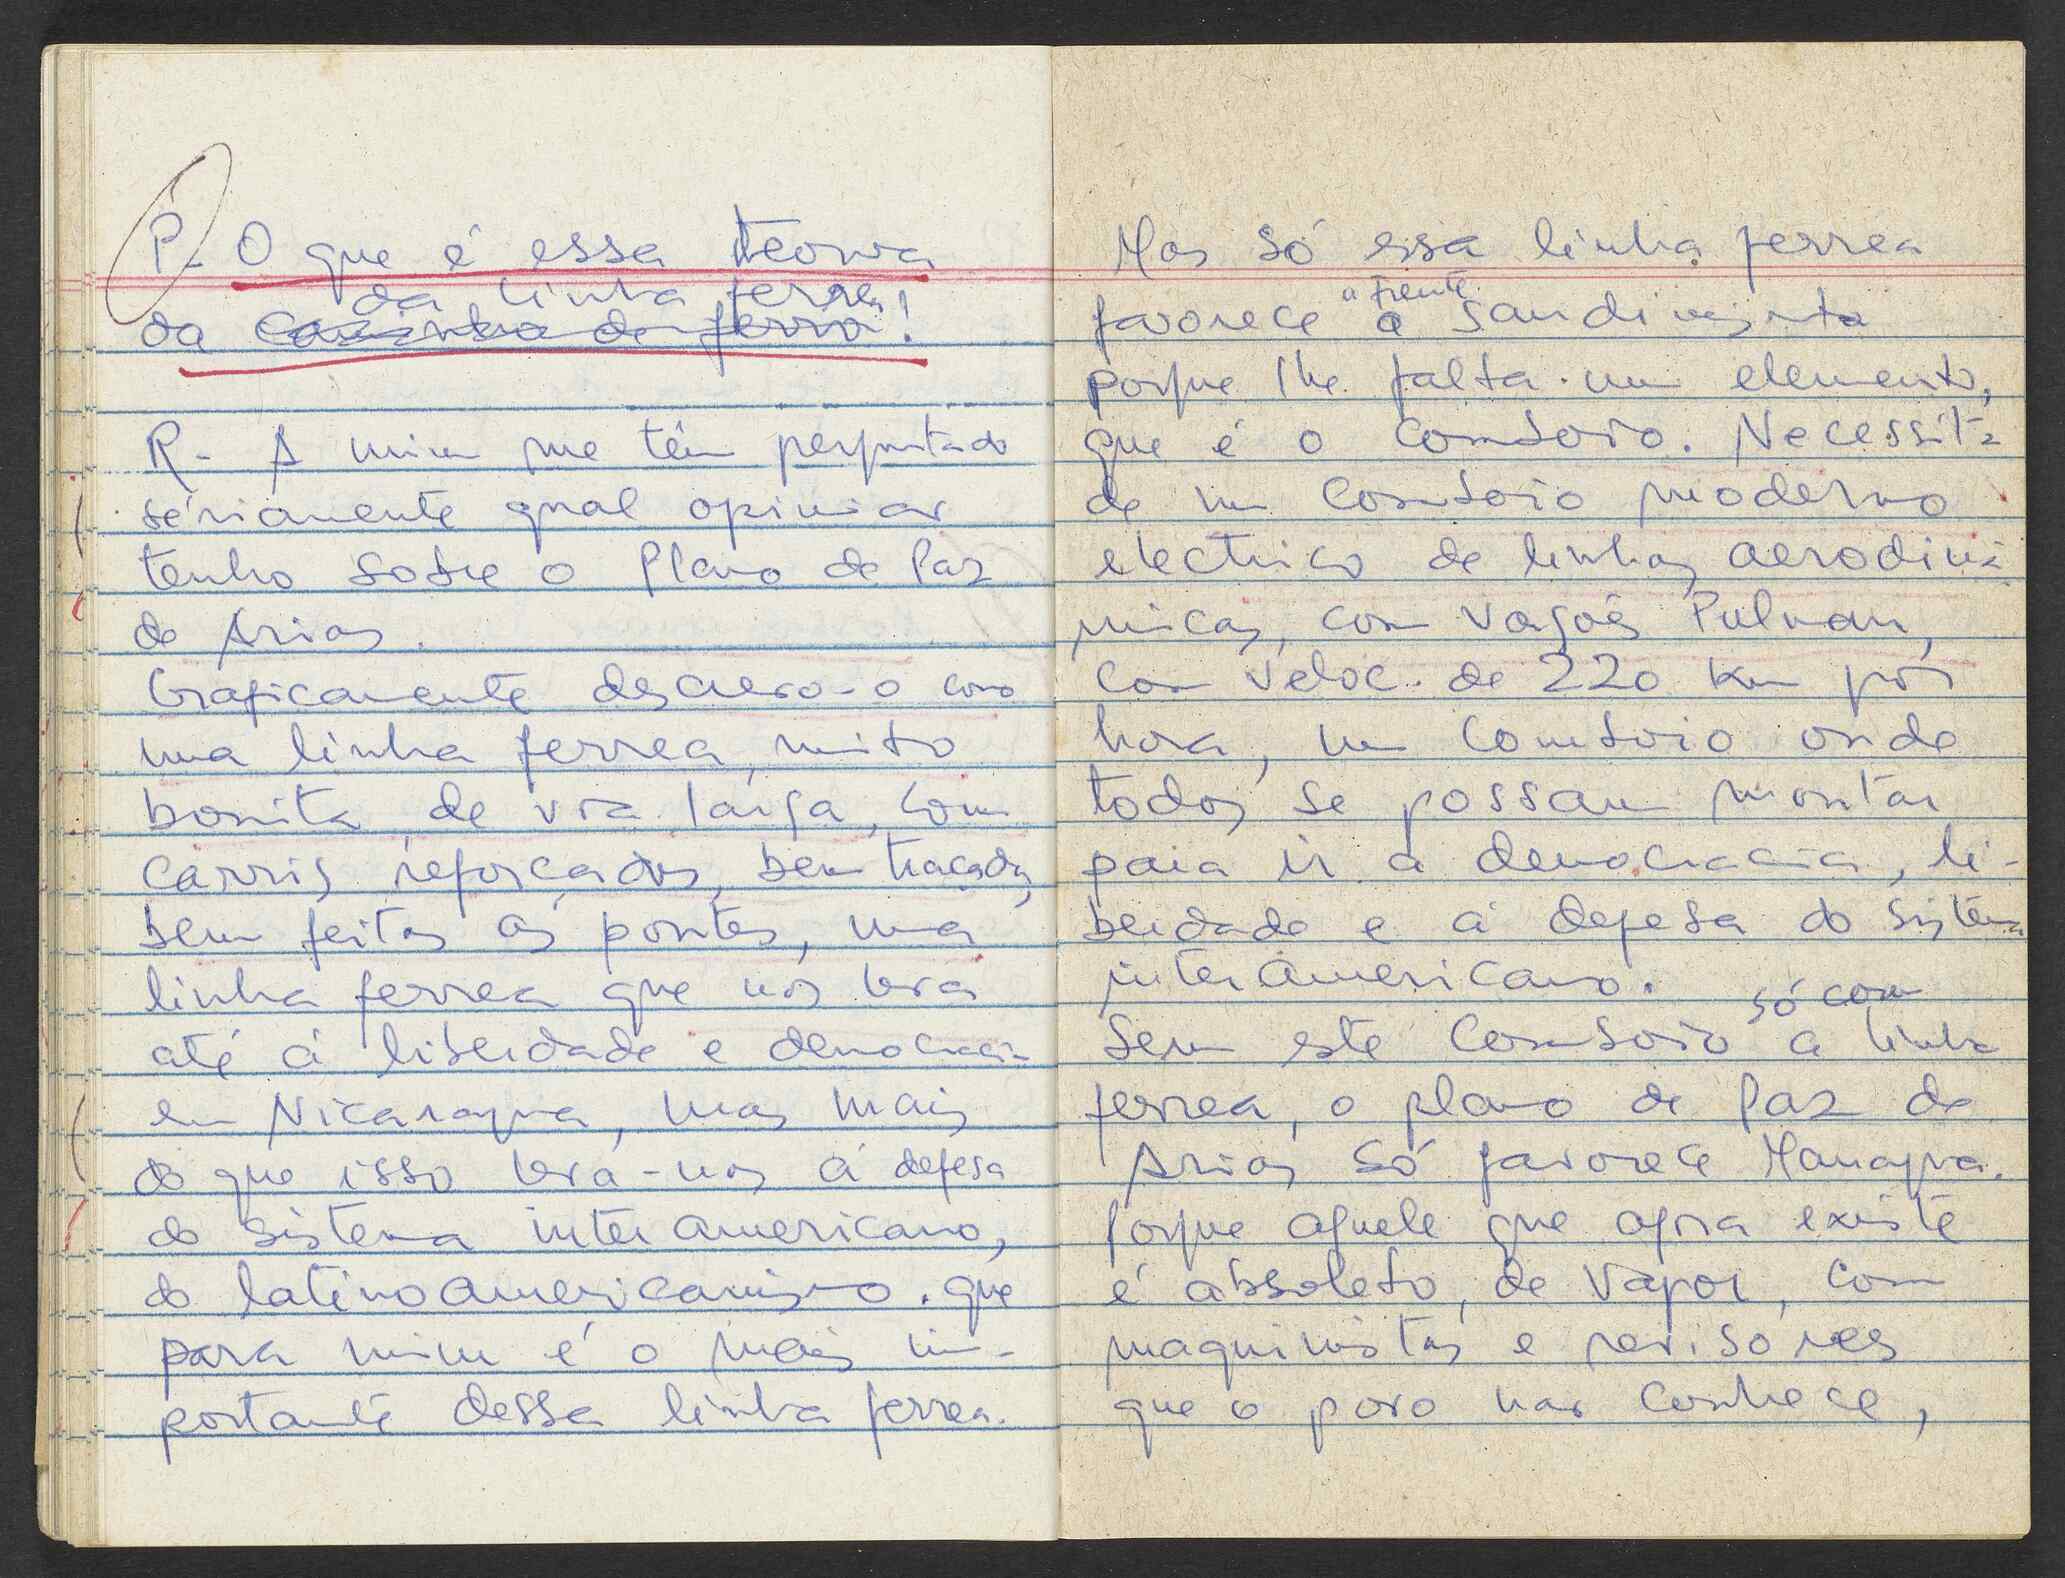 P- O que é essa teoria
da linha ferrea
da casinha de ferro!
R- A mim me têm perguntado
sériamente qual opinião
tenho sobre o Plano de Paz
de Arias.
Graficamente descrevo-o como
uma linha ferrea, muito
bonita, de via larga, com
carris reforçados, bem traçada,
bem feitas as pontes, uma
linha ferrea que nos leva
até á liberdade e democracia
em Nicaragua, mas mais
do que isso leva-nos á defesa
do sistema interamericano,
do latinoamericanismo. que
para mim é o mais im-
portante dessa linha ferrea.
Mas só essa linha ferrea
a frente
favorece a sandinista
porque lhe falta um elemento,
que é o comboio. Necessita
de um comboio moderno
electrico de linhas aerodinâ
micas, com vagoês Pulman,
com veloc. de 220 km por
hora, um comboio onde
todos se possam montar
para ir á democracia, li-
berdade e á defesa do sistema
interamericano.
só com
Sem este comboio a linha
ferrea, o plano de Paz de
Arias só favorece Managua.
Porque aquele que agora existe
é absoleto, de vapor, com
maquinistas e revisores
que o povo não conhece,